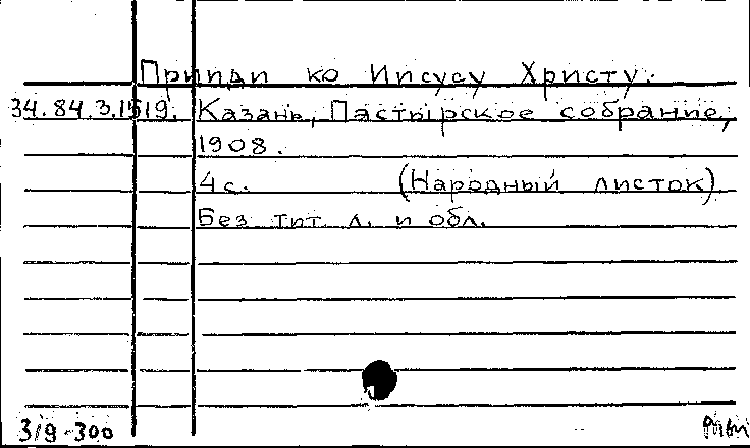 Прииди ко Иисусу Христу.
34.84.3.1519. Казань, Пастырское собрание,
1908.
4с. (Народный листок)
Без тит л. и обл.
319-300